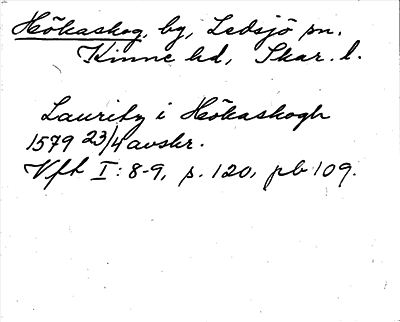 Hökaskog, by, Ledsjö sn.
Kinne hd, Skar. l.
Lauritz i Hökaskogh
1579 23/4 avskr.
Vft I: 8-9, s. 120, pb 109.